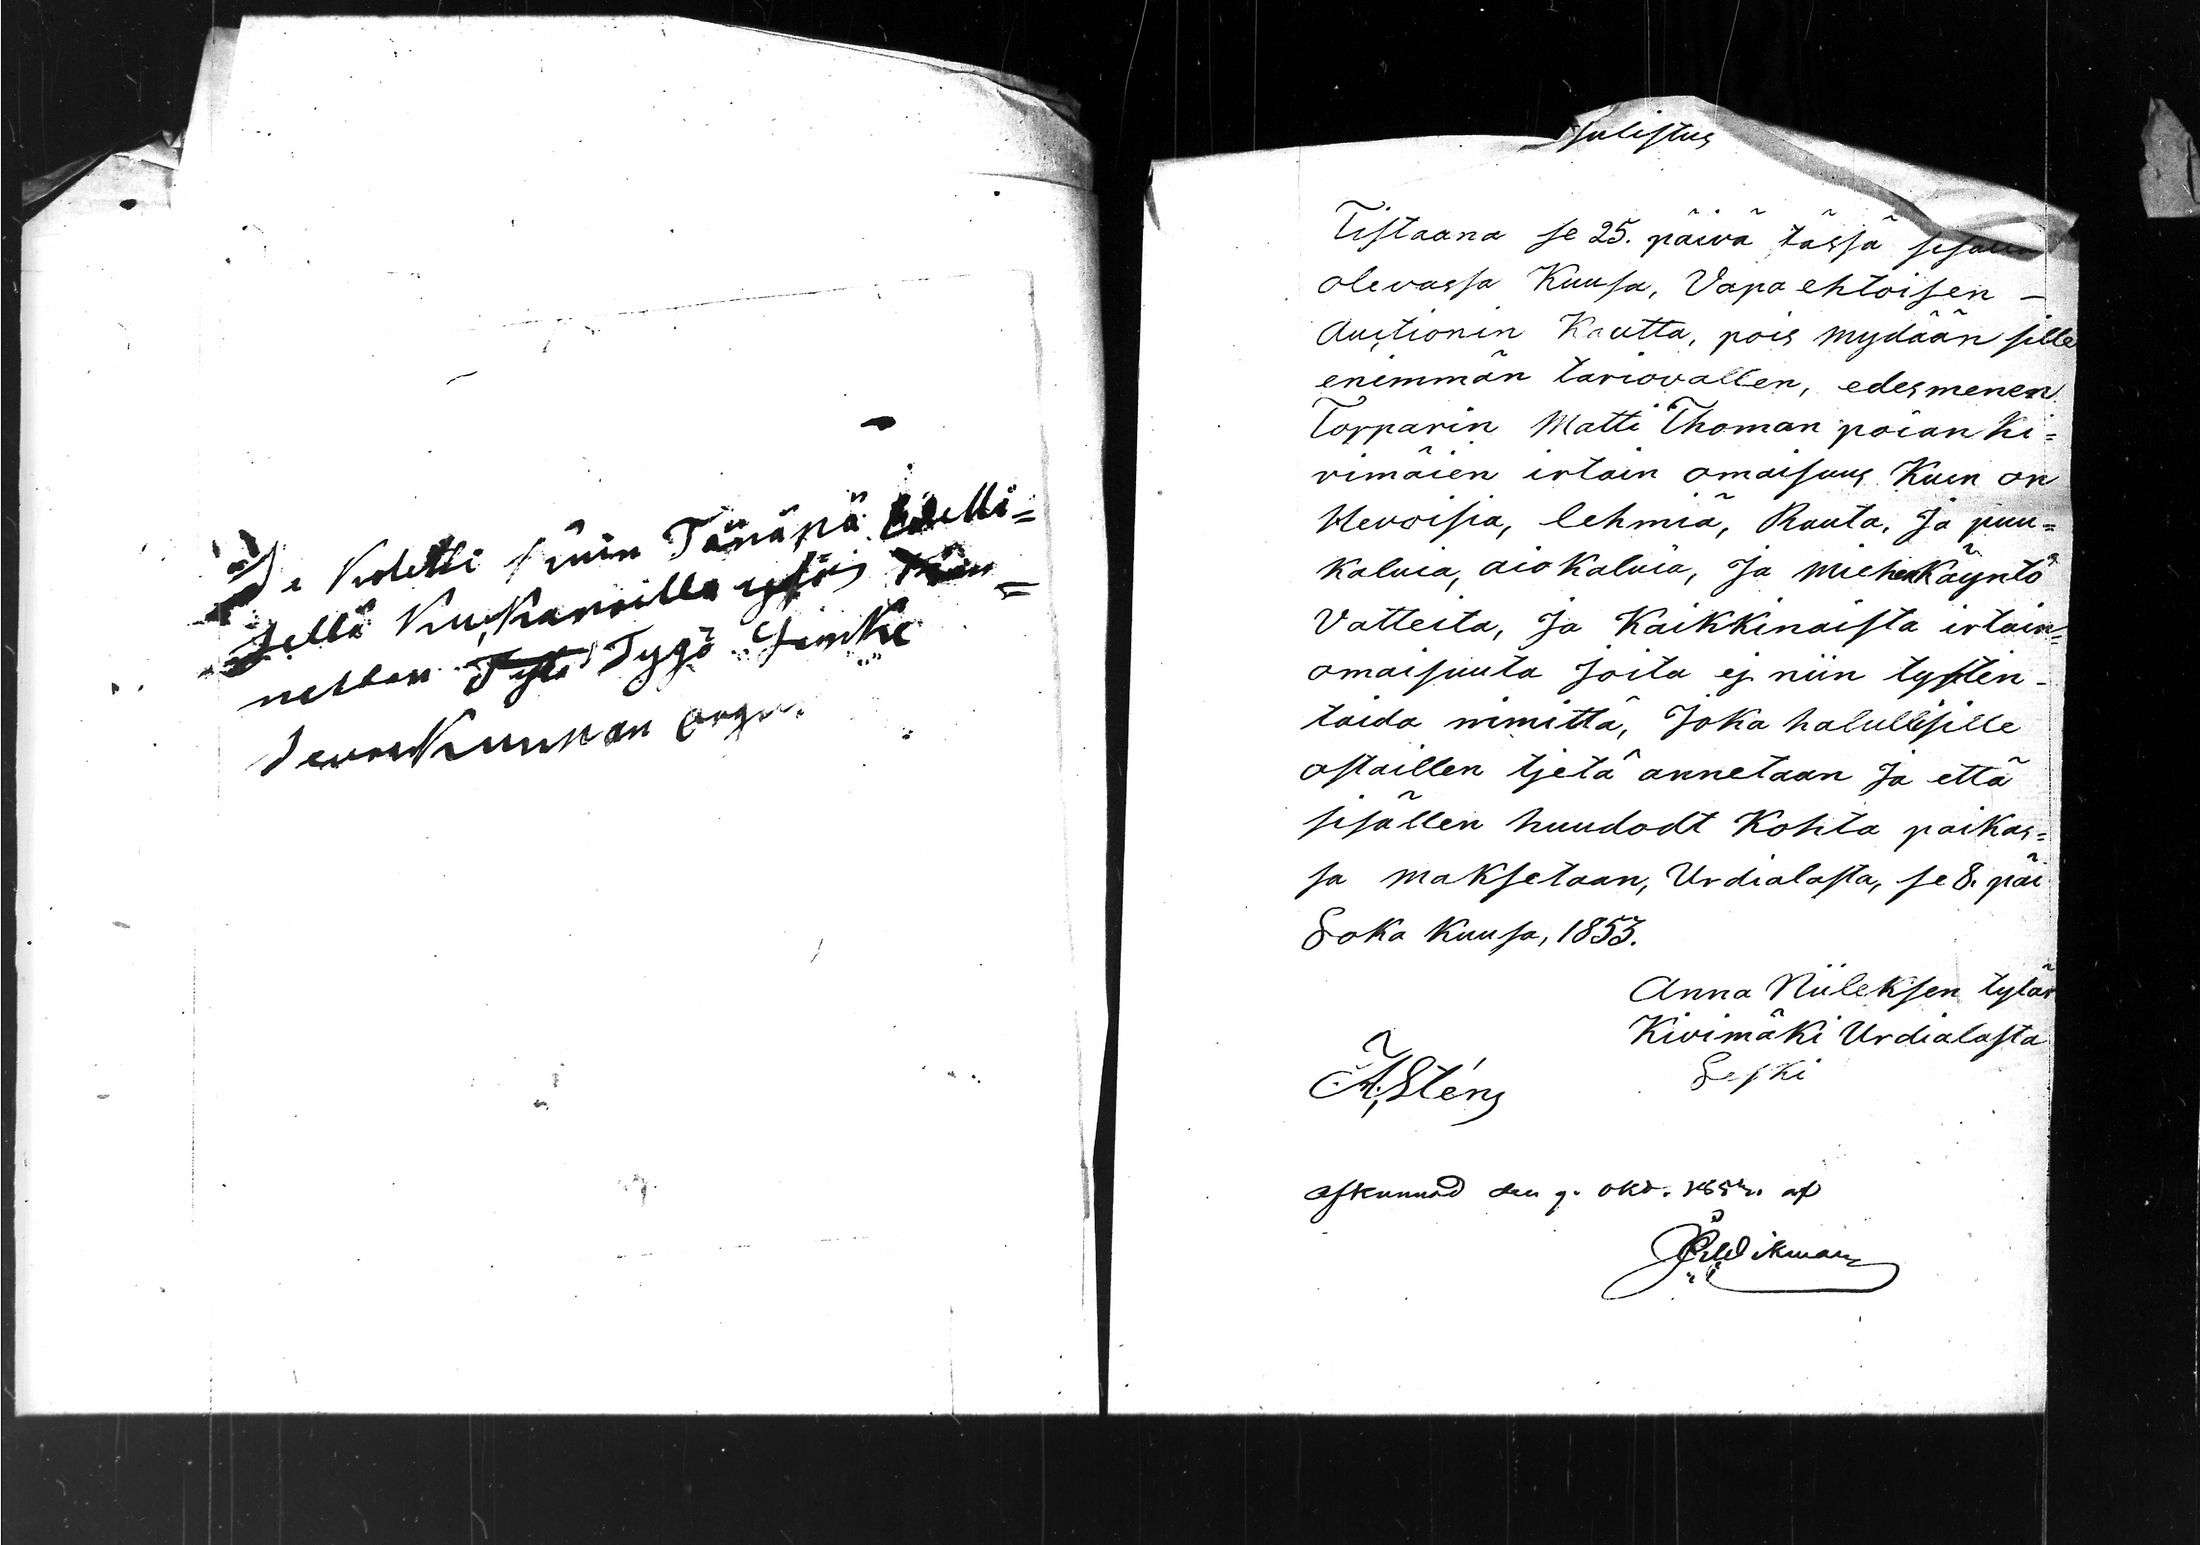 Kolekti kuin Tänäpä
sellä Kuckaroilla ylös
nettan Tygö
seurakunnan
Julistus
Tistaana se 25. päivä tässä
olevassa Kuusa, Vapa ehtoisen -
Auctionin Kautta, pois mydään sille
enimmän tariovallen, edesmenen
Torparin Matti Thoman poian Ki=
vimäien irtain omaisuus Kuin on
Hevoisia, lehmiä, Rauta, Ja puu=
Kaluia, aioKaluia, Ja miehenKäyntö
Vatteita, Ja Kaikkinaista irtain=
omaisuuta Joita ej niin tysten-
taida nimittä, JoKa halullisille
ostaillen tjetä annetaan Ja että
sisällen huudodt Kohta paikas=
sa maksetaan, Urdialasta, se 8. päi
LoKa Kuusa, 1853.
Anna Niileksen tytär
Kivimäki Urdialasta
Leski
A. Sténs
afkunnad den 9. okt. 1853. af
Wikman